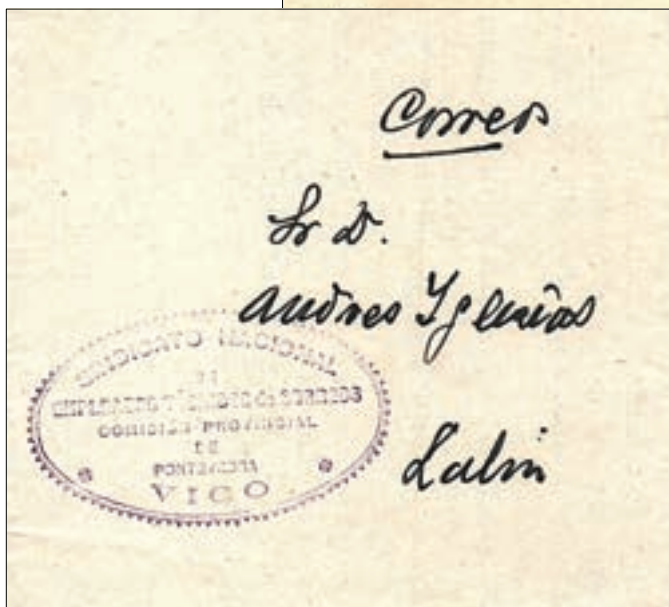 Correos
Sr D.
Andres Yglesias
Lalin
SINDICATO NACIONAL
DE
EMPLEADOS TÉCNICOS DE CORREOS
COMISIÓN PROVINCIAL
DE
PONTEVEDRA
VIGO